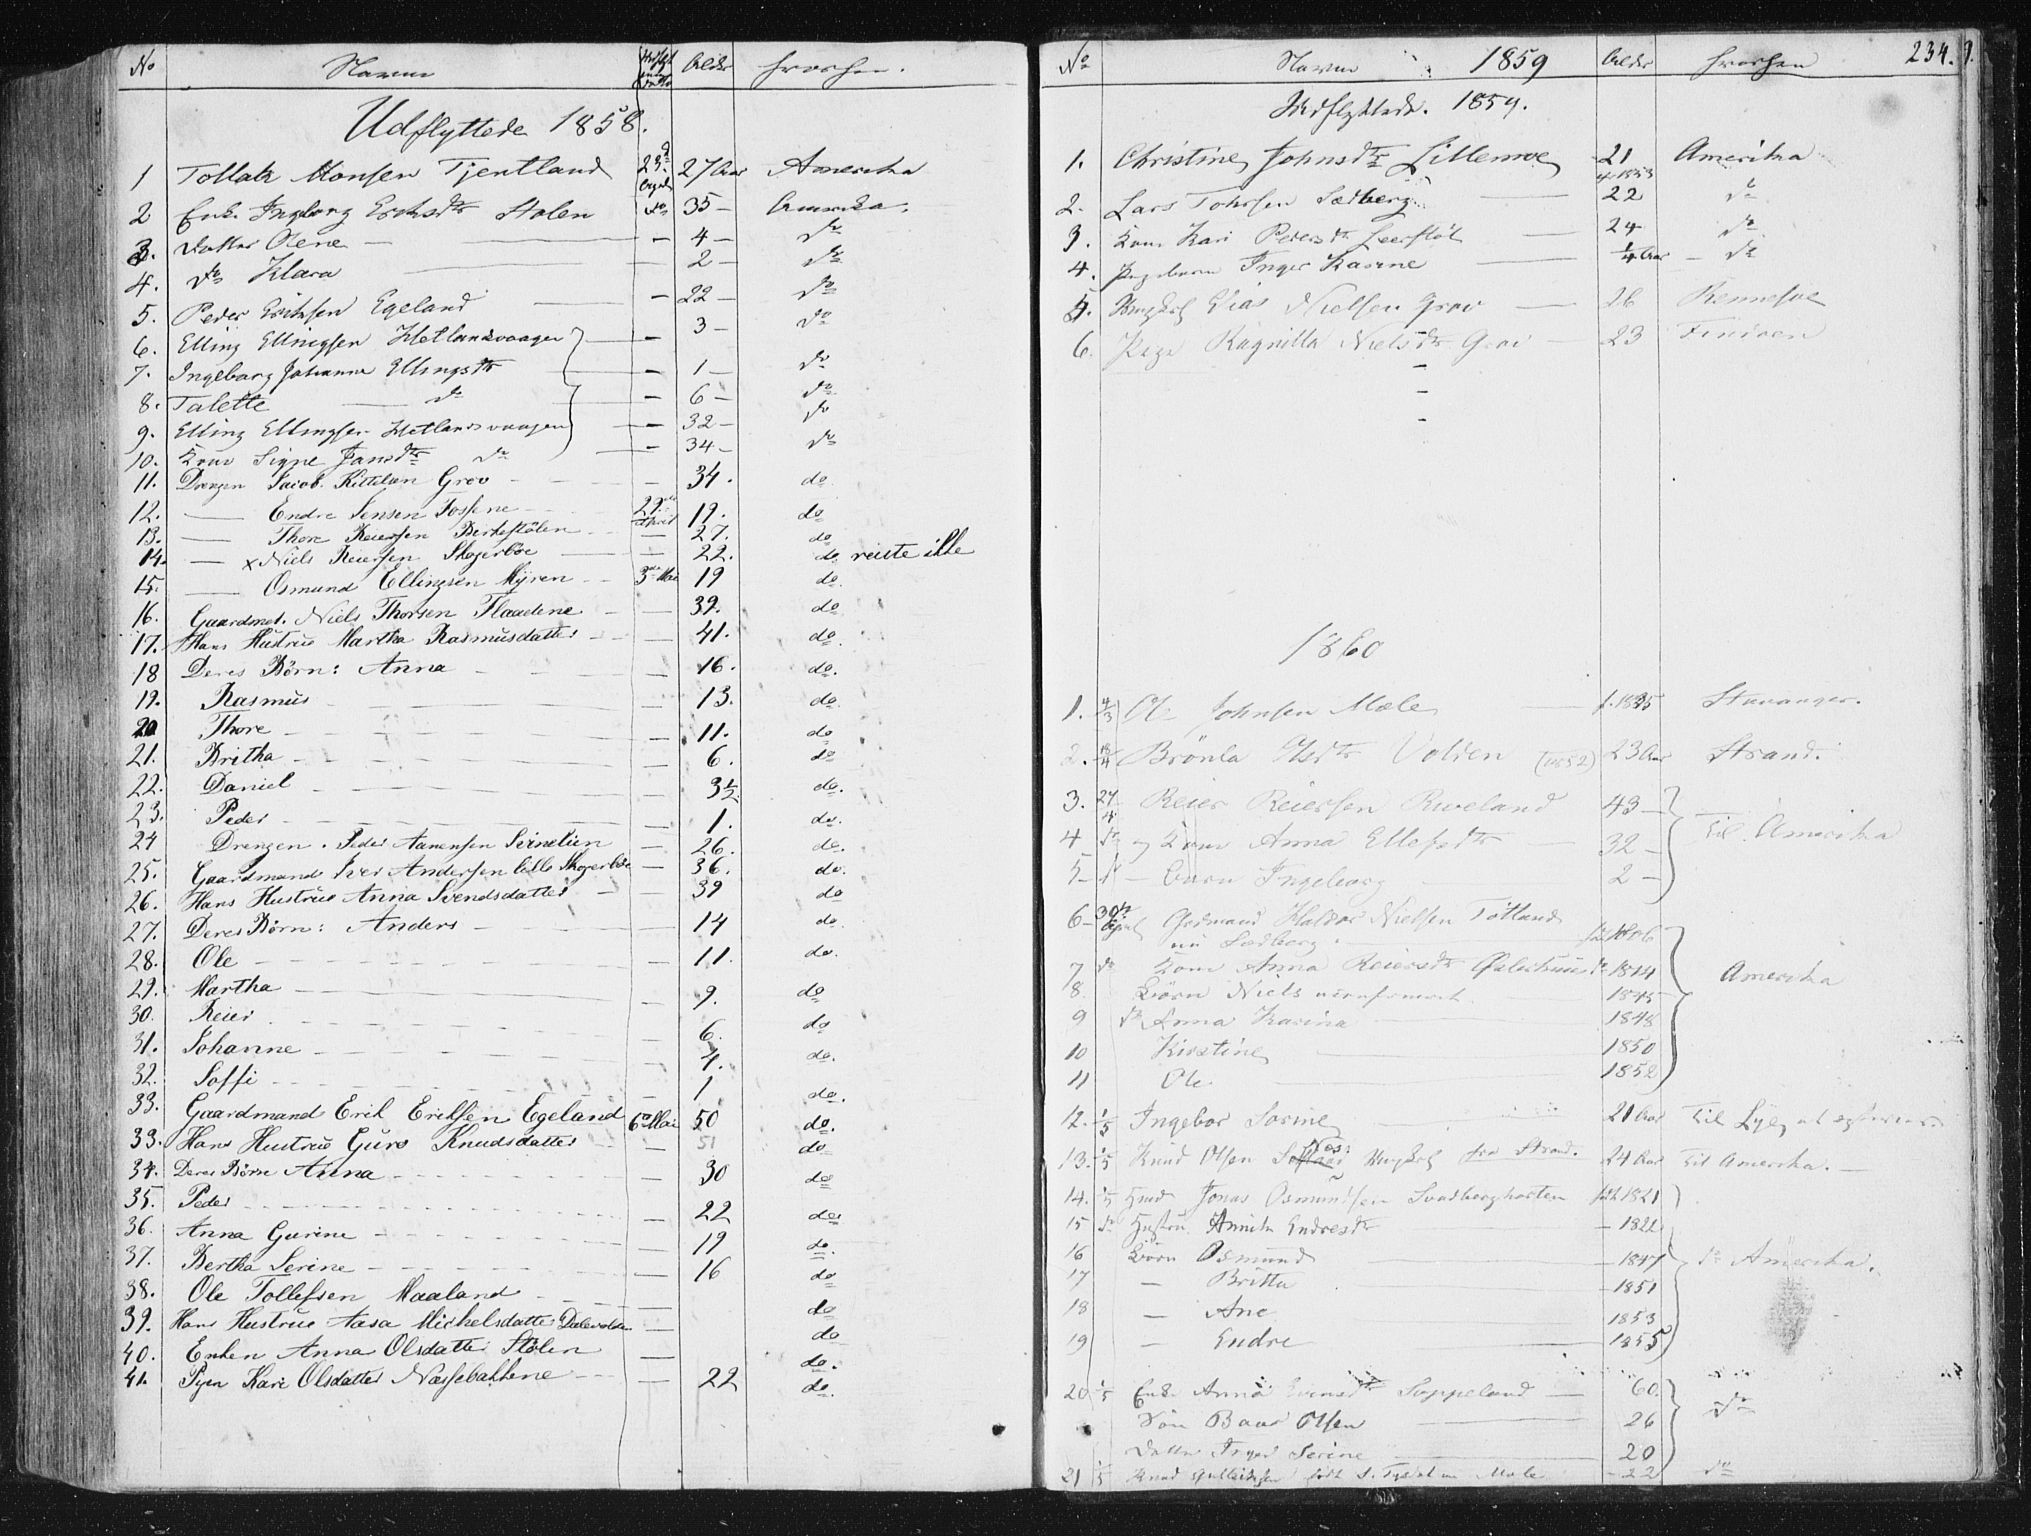 No Navne Alder hvorhen.
Udflyttede 1858.
1 Tollak Monsen Tjentland 23de April 27 Aar Amerika
2 Enke Ingborg Eriksdtr Stølen do 35 – Amerika.
3. Datter Olene – – 4 – do
4. do Klara 2 – do
5. Peder Eriksen Egeland – 22 – do
6. Elling Ellingsen Hetlandsvaagen – 3 – do
7. Ingeborg Johanna Ellingsdtr – 1 – do
8. Talette do – 6 – do
9. Elling Ellingsen Hetlandsvaagen – 32 – do
10. Kone Signe Jansdtr do – 34 – do
11. Drengen Jacob Kittelsen Grov – 34. do
12. — Endre Jensen Fossene 29de April 19. do
13. — Thore Reiersen Birkestølen — 27. do
14. — x Niels Reiersen Skogerboe — 22. do reiste ikke
15. — Osmund Ellingsen Myren 3die Mai 19 do
16. Gaardmd. Niels Thorsen Flaadene — 39. do
17. Hans Hustrue Martha Rasmusdatter — 41. do.
18 Deres Børn: Anna — 16. do.
19. Rasmus — 13. do
20 Thore — 11. do
21. Britha — 6. do
22. Daniel — 3½ do.
23. Peder — 1. do.
24 Drengen. Peder Aanensen — 26. do.
25. Gaardmand Iver Andersen lille Skogerboe — 36. do.
26. Hans Hustrue Anna Svendsdatter — 39 do
27. Deres Børn: Anders — 14 do
28. Ole — 11. do.
29. Martha — 9. do
30. Reier 6. do
31. Johanne — 4. do.
32. Soffi — 1 do.
33. Gaardmand Erik Eriksen Egeland 6te Mai 50 do.
33. Hans Hustrue Guro Knudsdatter — 51 do
34. Deres Børn Anna — 30 do
35. Peder — 22 do
36. Anna Gurine — 19 do.
37. Bertha Serine — 16 do
38. Ole Tollefsen Maaland — do
39. Hans Hustrue Aasa Michelsdatter — do
40. Enken Anna Olsdatter Stølen — do.
41. Pigen Kari Olsdatter Næssebakkene — 22 do.
No Navne 1859 Alder hvorhen 234.
Udflyttede. 1859.
1. Christine Johnsdtr Lillemoe 21 Amerika
2. Lars Sædberg 22 do
3. Kone Kari Pedersdtr 24 do
4. Inger Karine ¼ Aar – do
5. Ungkarl Elias Nielsen Grov 26 Rennesøe
6. Pige Ragnilla Nielsdtr Grov 23 Findøen
1860
1. 4/3 Ole Johnsen Mæle f. 1835 Stavanger.
2. Brønla Olsdtr Volden (1852) 23 Aar Strand.
3. 24/4 Reier Reiersen Riveland 43 –
4 do og Kone Anna Ellefsdtr 32 – til Amerika
5 – barn Ingeborg 2 –
6 – 30te April Gdmand Haldor Nielsen Tøtland
nu Sædberg. født 1806
7 do Kone Anna Reiersdtr do 1814 Amerika
8 Børn Niels 1845
9 do Anna Karina 1848
10 Kirstine 1850
11 Ole 1852
12. 1/5 Ingebor Sorine 21 Aar
13. 1/5 Knud Olsen Ungkarl fra Strand. 24 Aar til Amerika. –
14. 1/5 Jonas Osmundsen født 1821
15 do Hustru Endresdtr – 1822
16 Børn Osmund – 1847 do Amerika.
17 – Britta 1851
18 – Ane 1853
19 – Endre 1855
20 1/5 Enke Anna 60. do
Søn Baar Olsen 26
Datter Inger Serine 20
21 1/5 Knud – 22 do